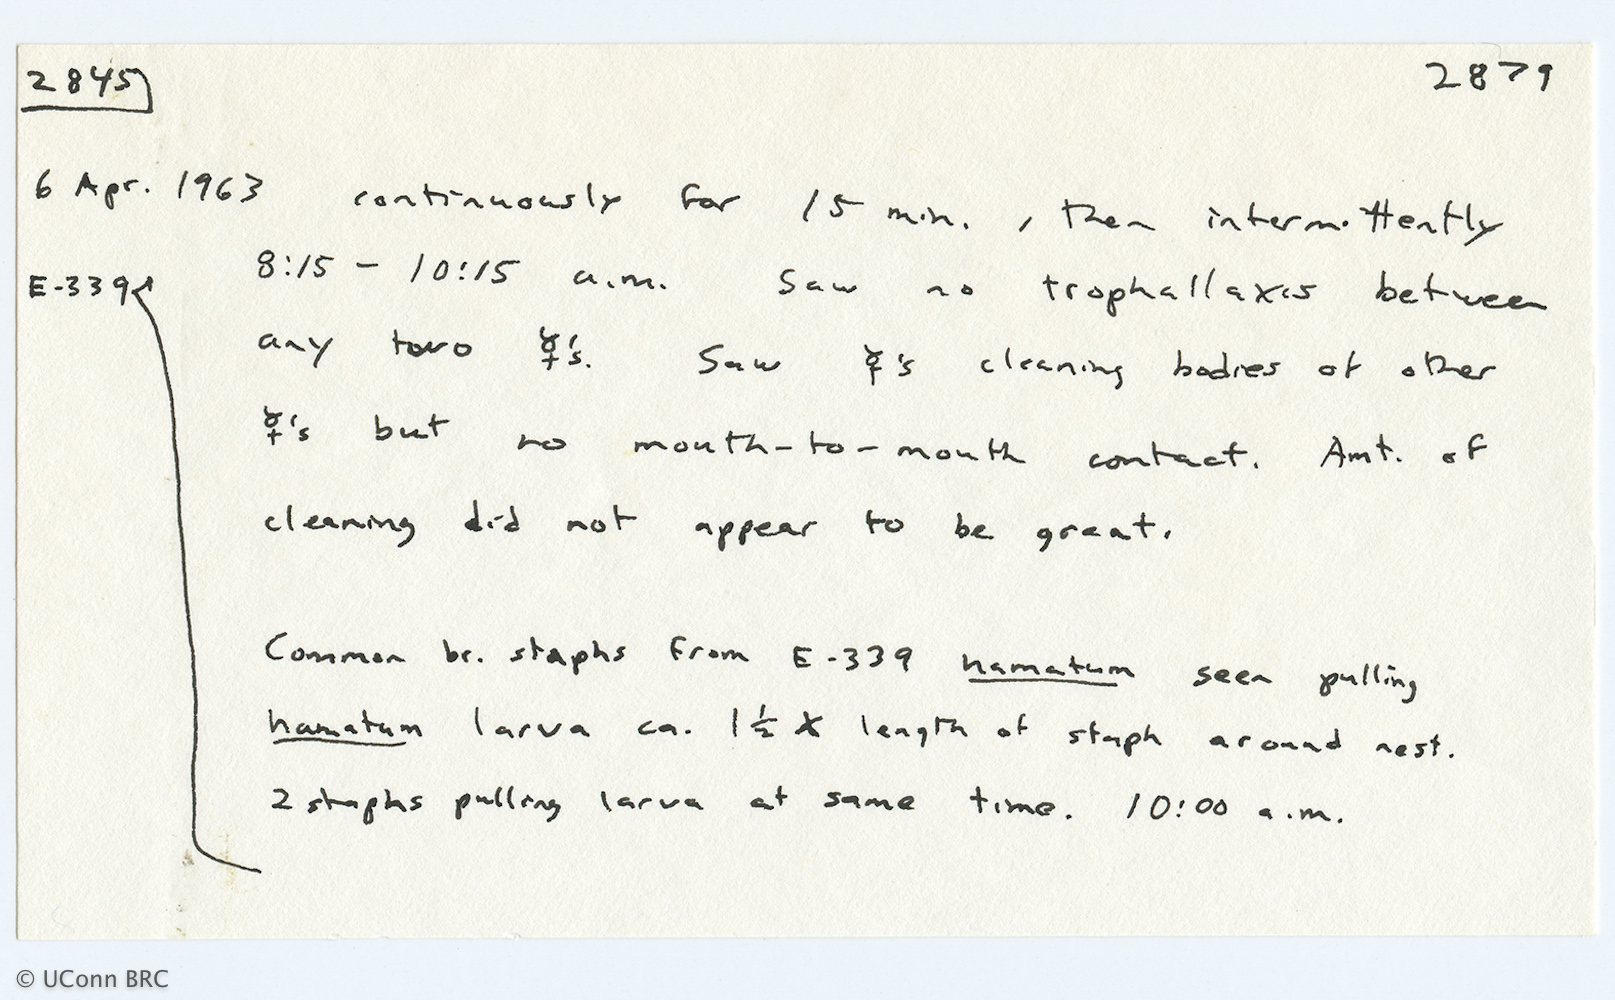 2845 2879
6 Apr. 1963 continuously for 15 min., then intermittently
E-339 8:15 - 10:15 a.m. Saw no trophallaxis between
any two ☿'s. Saw ☿'s cleaning bodies of other
☿'s but no mouth-to-mouth contact. Amt. of
cleaning did not appear to be great.
Common br. staphs from E-339 hamatum seen pulling
hamatum larva ca. 1½ X length of staph around nest.
2 staphs pulling larva at same time. 10:00 a.m.
© UConn BRC